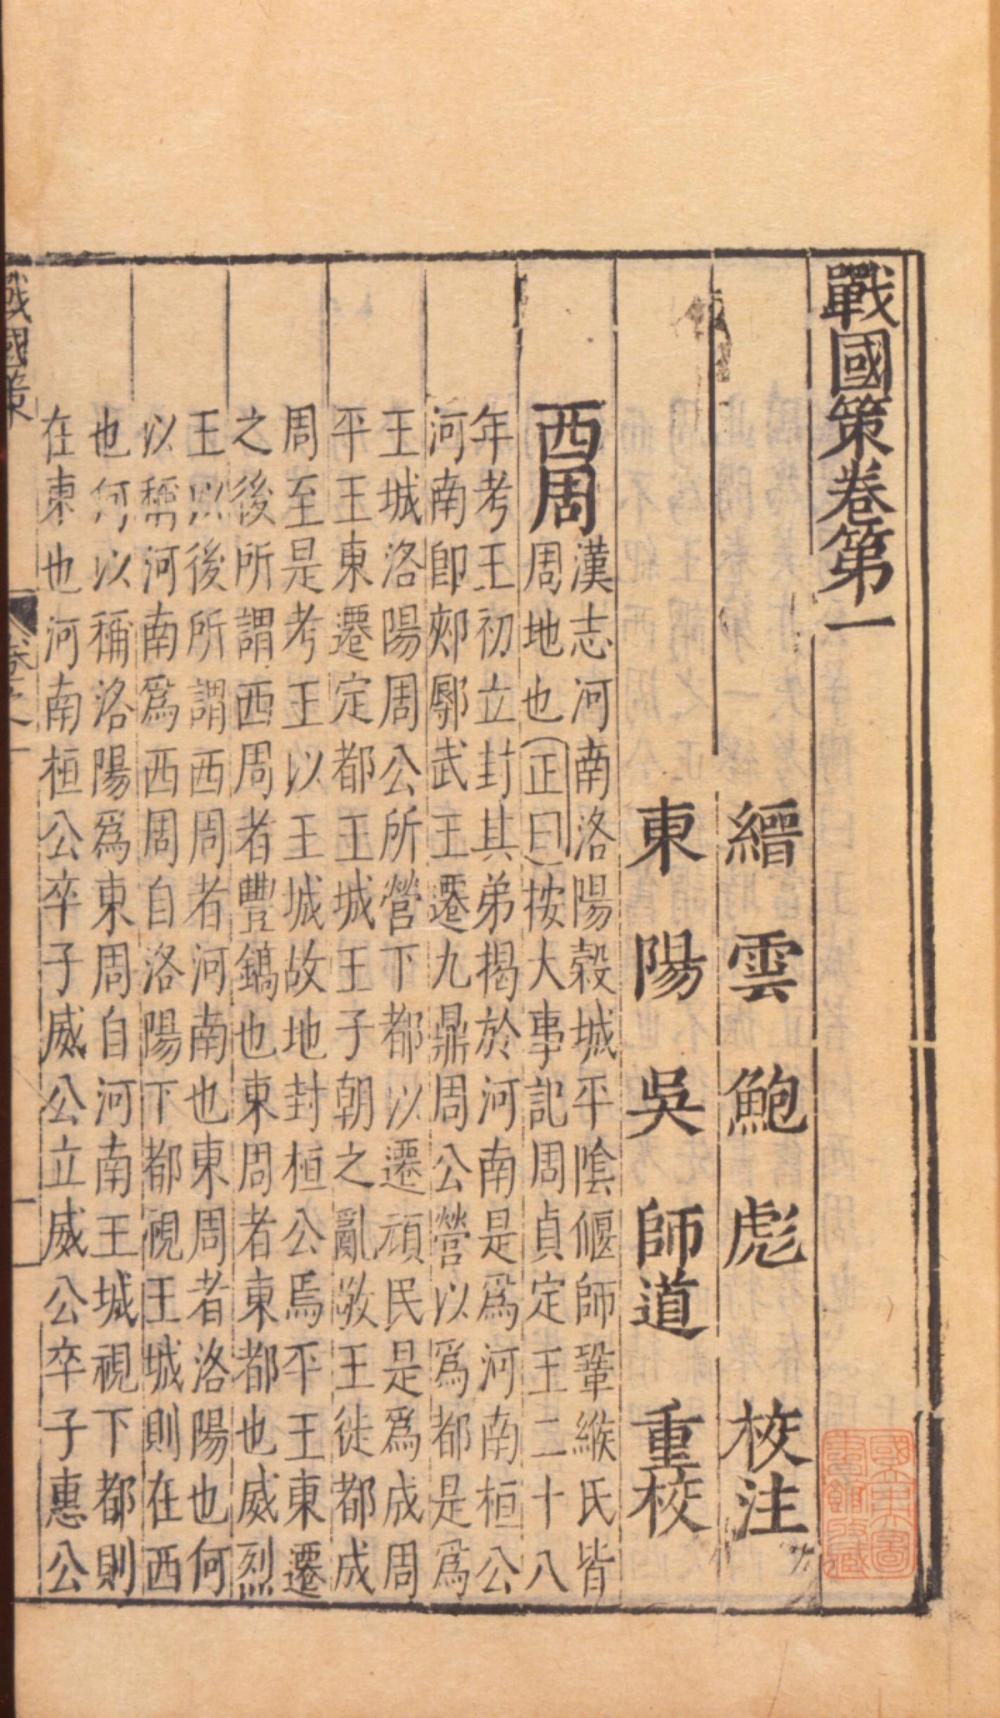 戰國策卷第一
縉雲鮑彪校注
東陽吳師道重校
西周
漢志河南洛陽穀城平陰偃師鞏緱氏皆
周地也正曰按大事記周貞定王二十八
年考王初立封其弟揭於河南是爲河南桓公
河南卽郟鄏武王遷九鼎周公營以爲都是爲
王城洛陽周公所營下都以遷頑民是爲成周
平王東遷定都王城王子朝之亂敬王徙都成
周至是考王以王城故地封桓公焉平王東遷
之後所謂西周者豐鎬也東周者東都也威烈
王以後所謂西周者河南也東周者洛陽也何
以稱河南爲西周自洛陽下都視王城則在西
也何以稱洛陽爲東周自河南王城視下都則
在東也河南桓公卒子威公立威公卒子惠公
戰國策
卷之一
一
國立中央圖書館藏